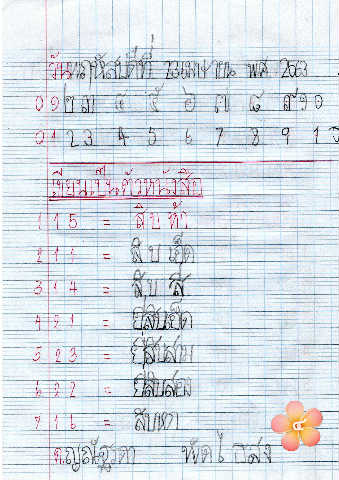 วันพฤหัสบดีที่ 23 เมษายน พ.ศ. 2563
0 ๑ ๒ ๓ ๔ ๕ ๖ ๗ ๘ ๙ ๑๐
0 1 2 3 4 5 6 7 8 9 10
เขียนเป็นตัวหนังสือ
1 15 = สิบห้า
2 11 = สิบเอ็ด
3 14 = สิบสี่
4 21 = ยี่สิบเอ็ด
5 23 = ยี่สิบสาม
6 22 = ยี่สิบสอง
7 16 = สิบหก